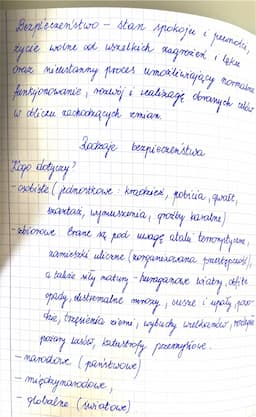 Bezpieczeństwo – stan spokoju i pewności,
życie wolne od wszelkich zagrożeń i lęku
oraz nieustanny proces umożliwiający normalne
funkcjonowanie, rozwój i realizację obranych celów
w obliczu zachodzących zmian.
Rodzaje bezpieczeństwa
Kogo dotyczy?
- osobiste (jednostkowe: kradzież, pobicia, gwałt,
szantaż, wymuszenia, groźby karalne)
- zbiorowe brane są pod uwagę ataki terrorystyczne,
zamieszki uliczne (zorganizowana przestępczość),
a także siły natury - huraganowe wiatry, obfite
opady, ekstremalne mrozy, susze i upały, powo-
dzie, trzęsienia ziemi, wybuchy wulkanów, rozległe
pożary lasów, katastrofy przemysłowe.
- narodowe (państwowe)
- międzynarodowe,
- globalne (światowe)